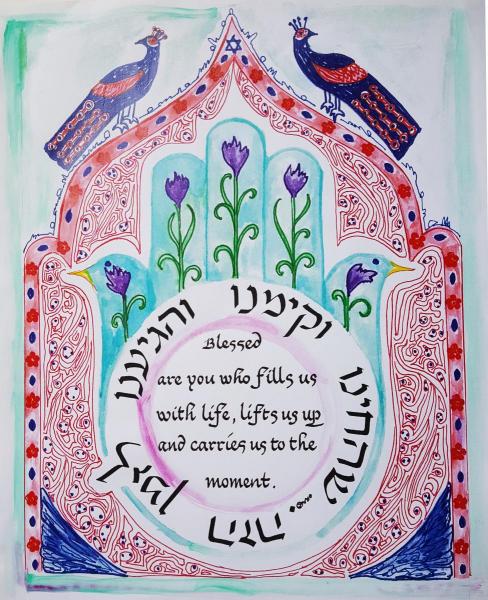 שהחינו וקימנו והגיענו לזמן הזה...
Blessed
are you who fills us
with life, lifts us up
and carries us to the
moment.